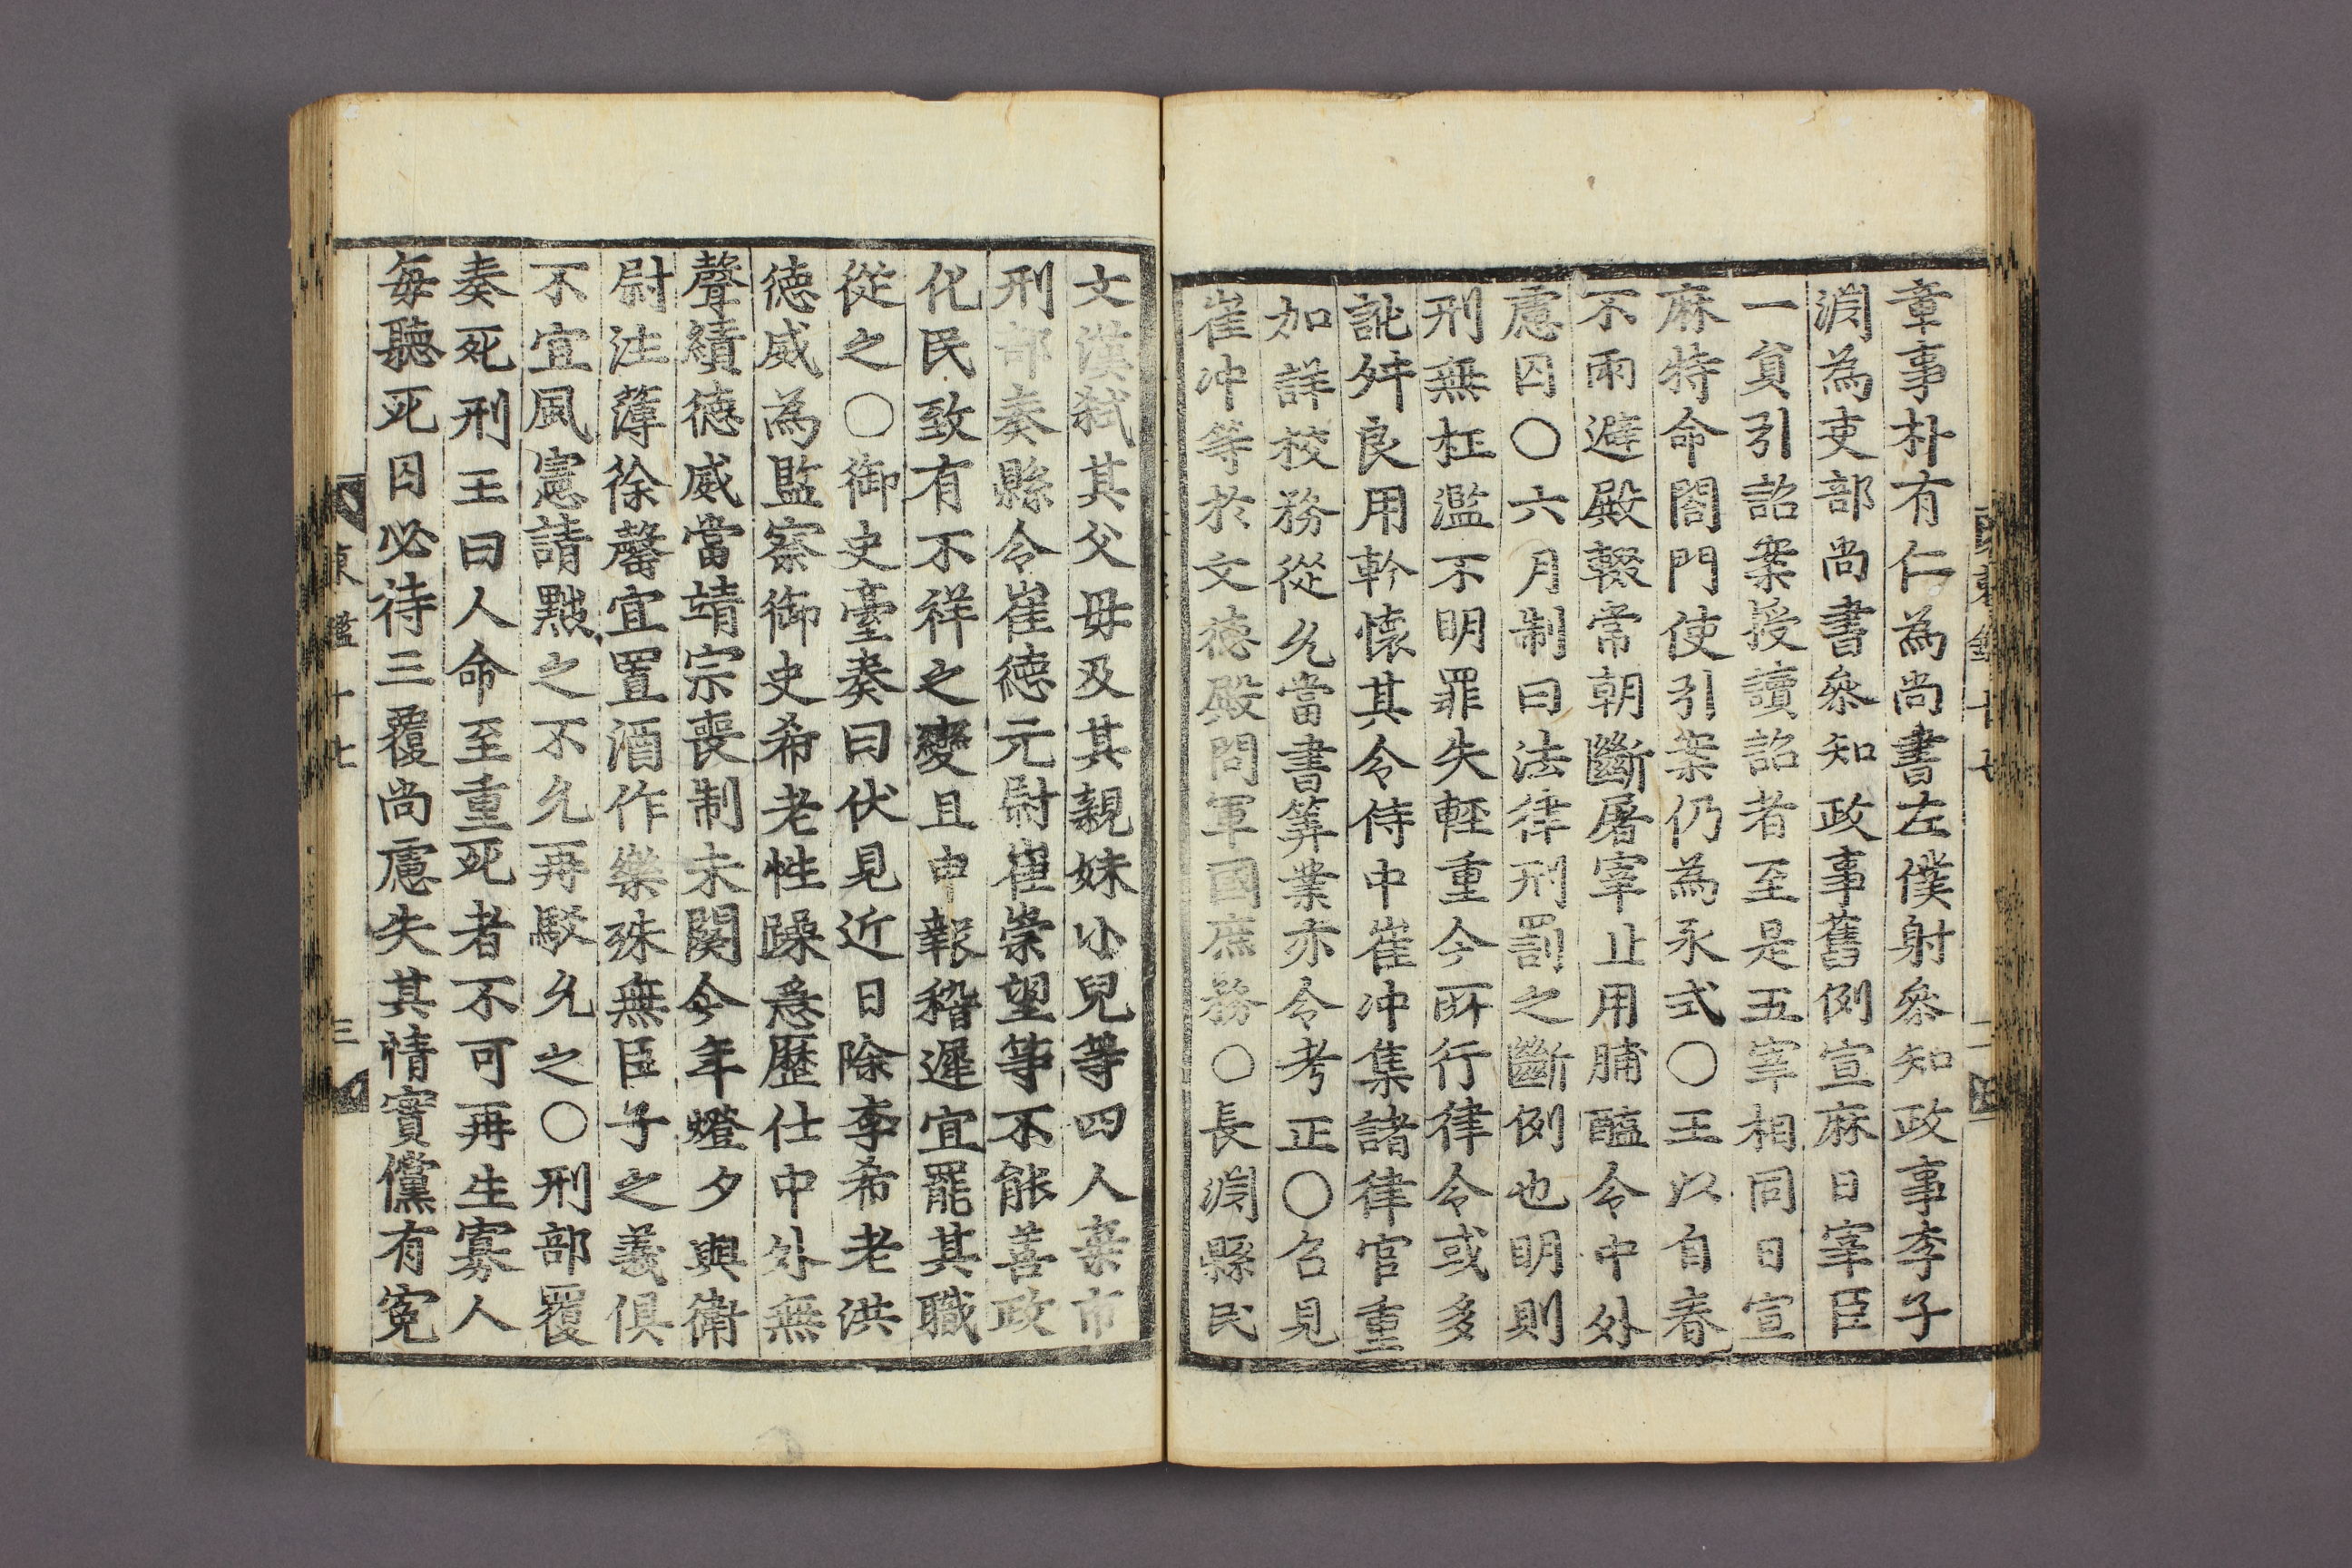 章事朴有仁為尚書左僕射叅知政事李子
淵為吏部尚書叅知政事舊例宣麻日宰臣
一負引詔案授讀詔者至是五宰相同日宣
麻特命閤門使引案仍為永式○王以自春
不雨避殿輟常朝斷屠宰止用脯醢令中外
慮囚○六月制曰法律刑罰之斷例也明則
刑無枉濫不明罪失輕重今所行律令或多
訛舛良用軫懷其令侍中崔冲集諸律官重
加詳校務從允當書筭業亦令考正○召見
崔冲等於文德殿問軍國庶務○長淵縣民
文漢弑其父母及其親妹小兒等四人棄市
刑部奏縣令崔德元尉崔崇望等不能善政
化民致有不祥之變且申報稽遲宜罷其職
從之○御史臺奏曰伏見近日除李希老洪
德威為監察御史希老性躁急歷仕中外無
聲績德威當靖宗喪制未闋今年燈夕與衛
尉注薄徐鏧宜置酒作樂殊無臣子之義俱
不宜風憲請黜之不允再駁允之○刑部覆
奏死刑王曰人命至重死者不可再生寡人
每聽死囚必待三覆尚慮失其情實儻有冤
東鑑十七
三